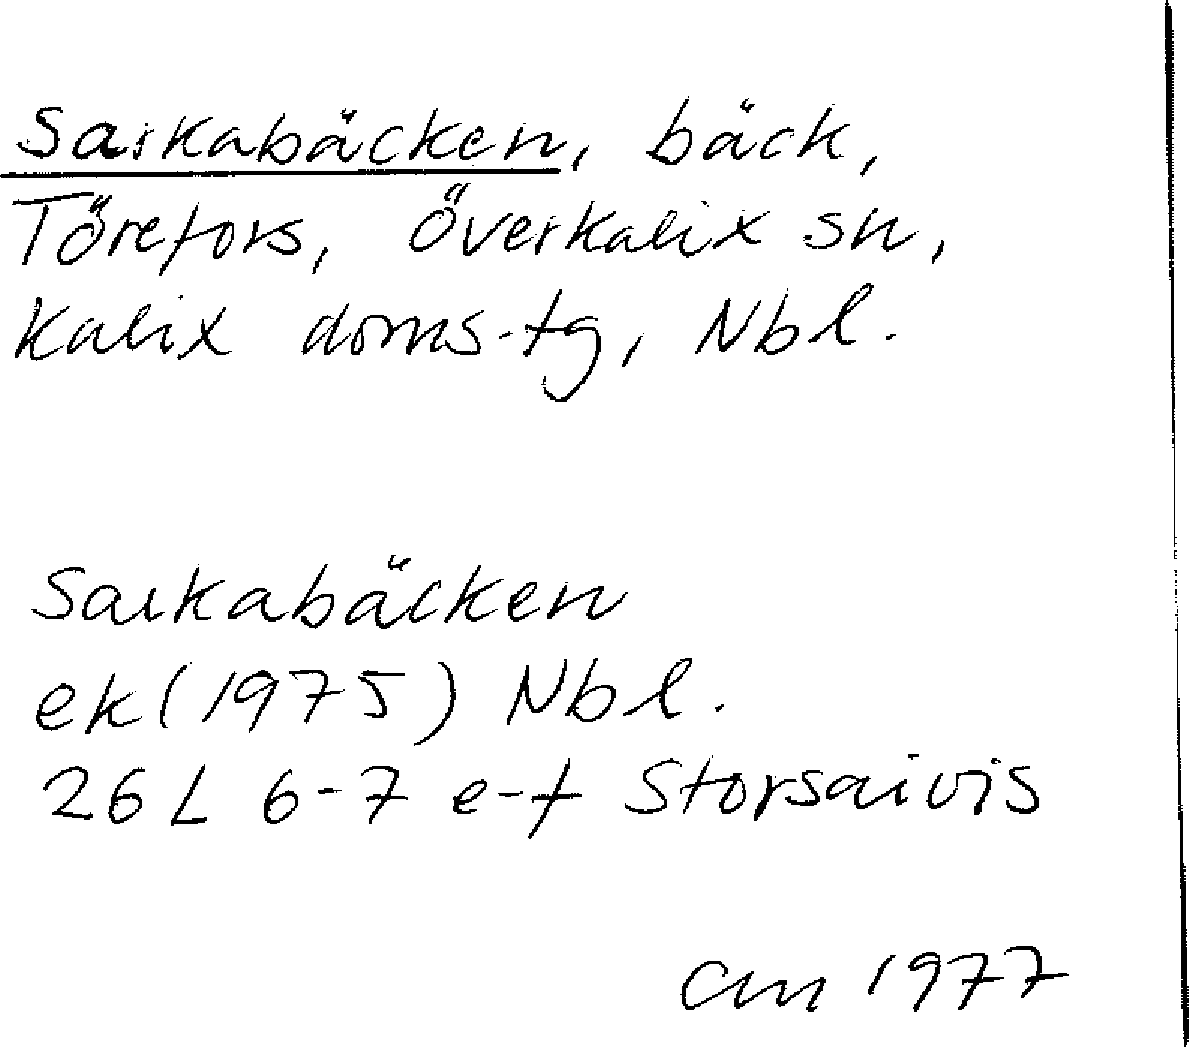 Sarkabäcken, bäck,
Törefors, Överkalix sn,
Kalix doms.tg, Nbl.
Sarkabäcken
ek (1975) Nbl.
26 L 6-7 e-f Storsaivis
CM 1977